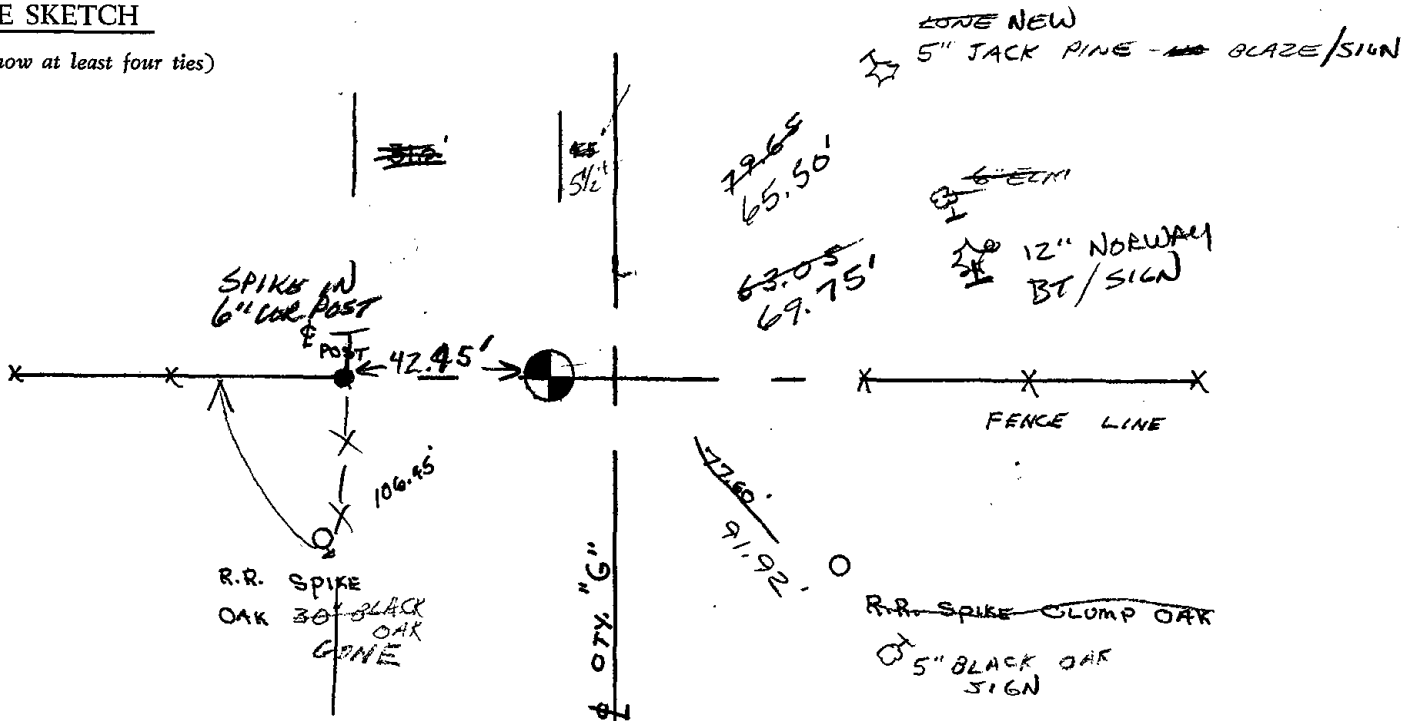 E SKETCH
how at least four ties)
GONE NEW
5" JACK PINE - BLAZE/SIGN
5 1/2'±
79.65
65.50'
6" ELM
12" NORWAY
BT/SIGN
63.05
69.75'
SPIKE IN
6" COR. POST
℄
POST
42.45'
FENCE LINE
106.45'
77.60'
91.92'
R.R. SPIKE
OAK 30" BLACK
OAK
GONE
℄ CTY. "G"
R.R. SPIKE CLUMP OAK
5" BLACK OAK
SIGN